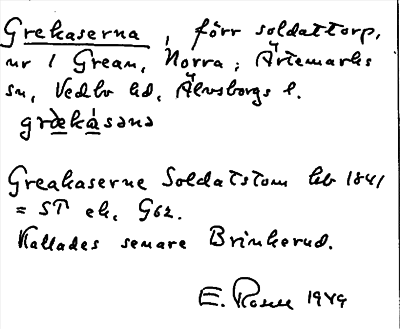 Grekaserna, förr soldattorp,
nr 1 Grean, Norra; Ärtemarks
sn, Vedbo hd, Älvsborgs l.
grækásənə
Greakaserne Soldatstom hb 1841
= ST ek. G62.
Kallades senare Brinkerud.
E. Rosell 1949